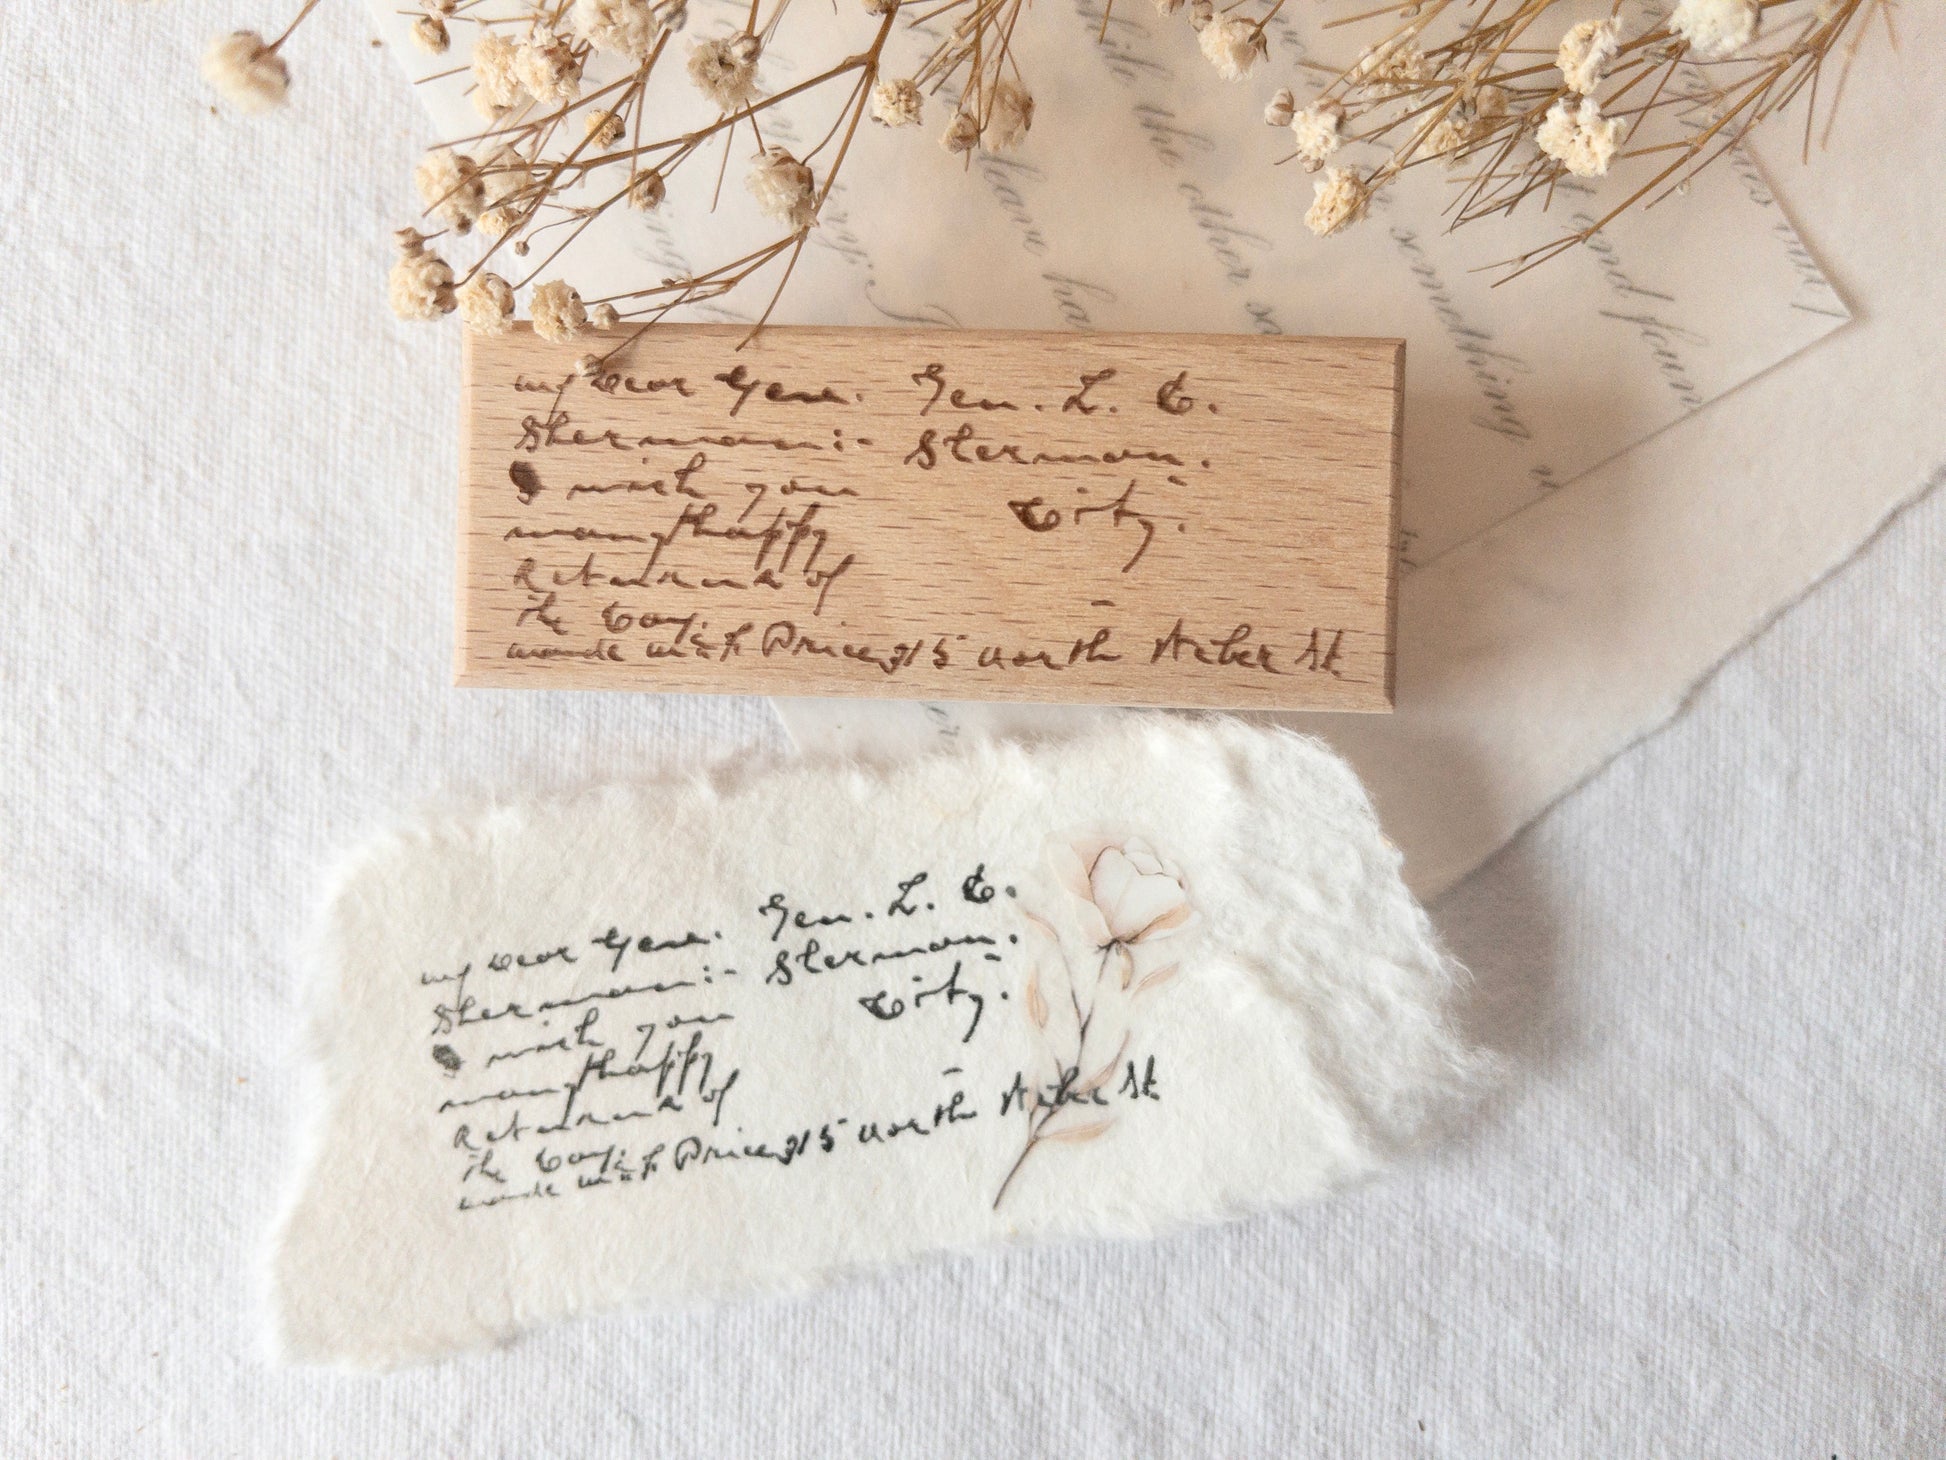 while the other so
have ha
something
and foun
my Dear Gene. Gen. L. C.
Sherman:- Sherman.
I wish you
City.
many happy
Returns of
the Day.
made with Price 315 north Acber St.
my Dear Gene. Gen. L. C.
Sherman:- Sherman.
I wish you
City.
many happy
Returns of
the Day.
made with Price 315 north Acber St.